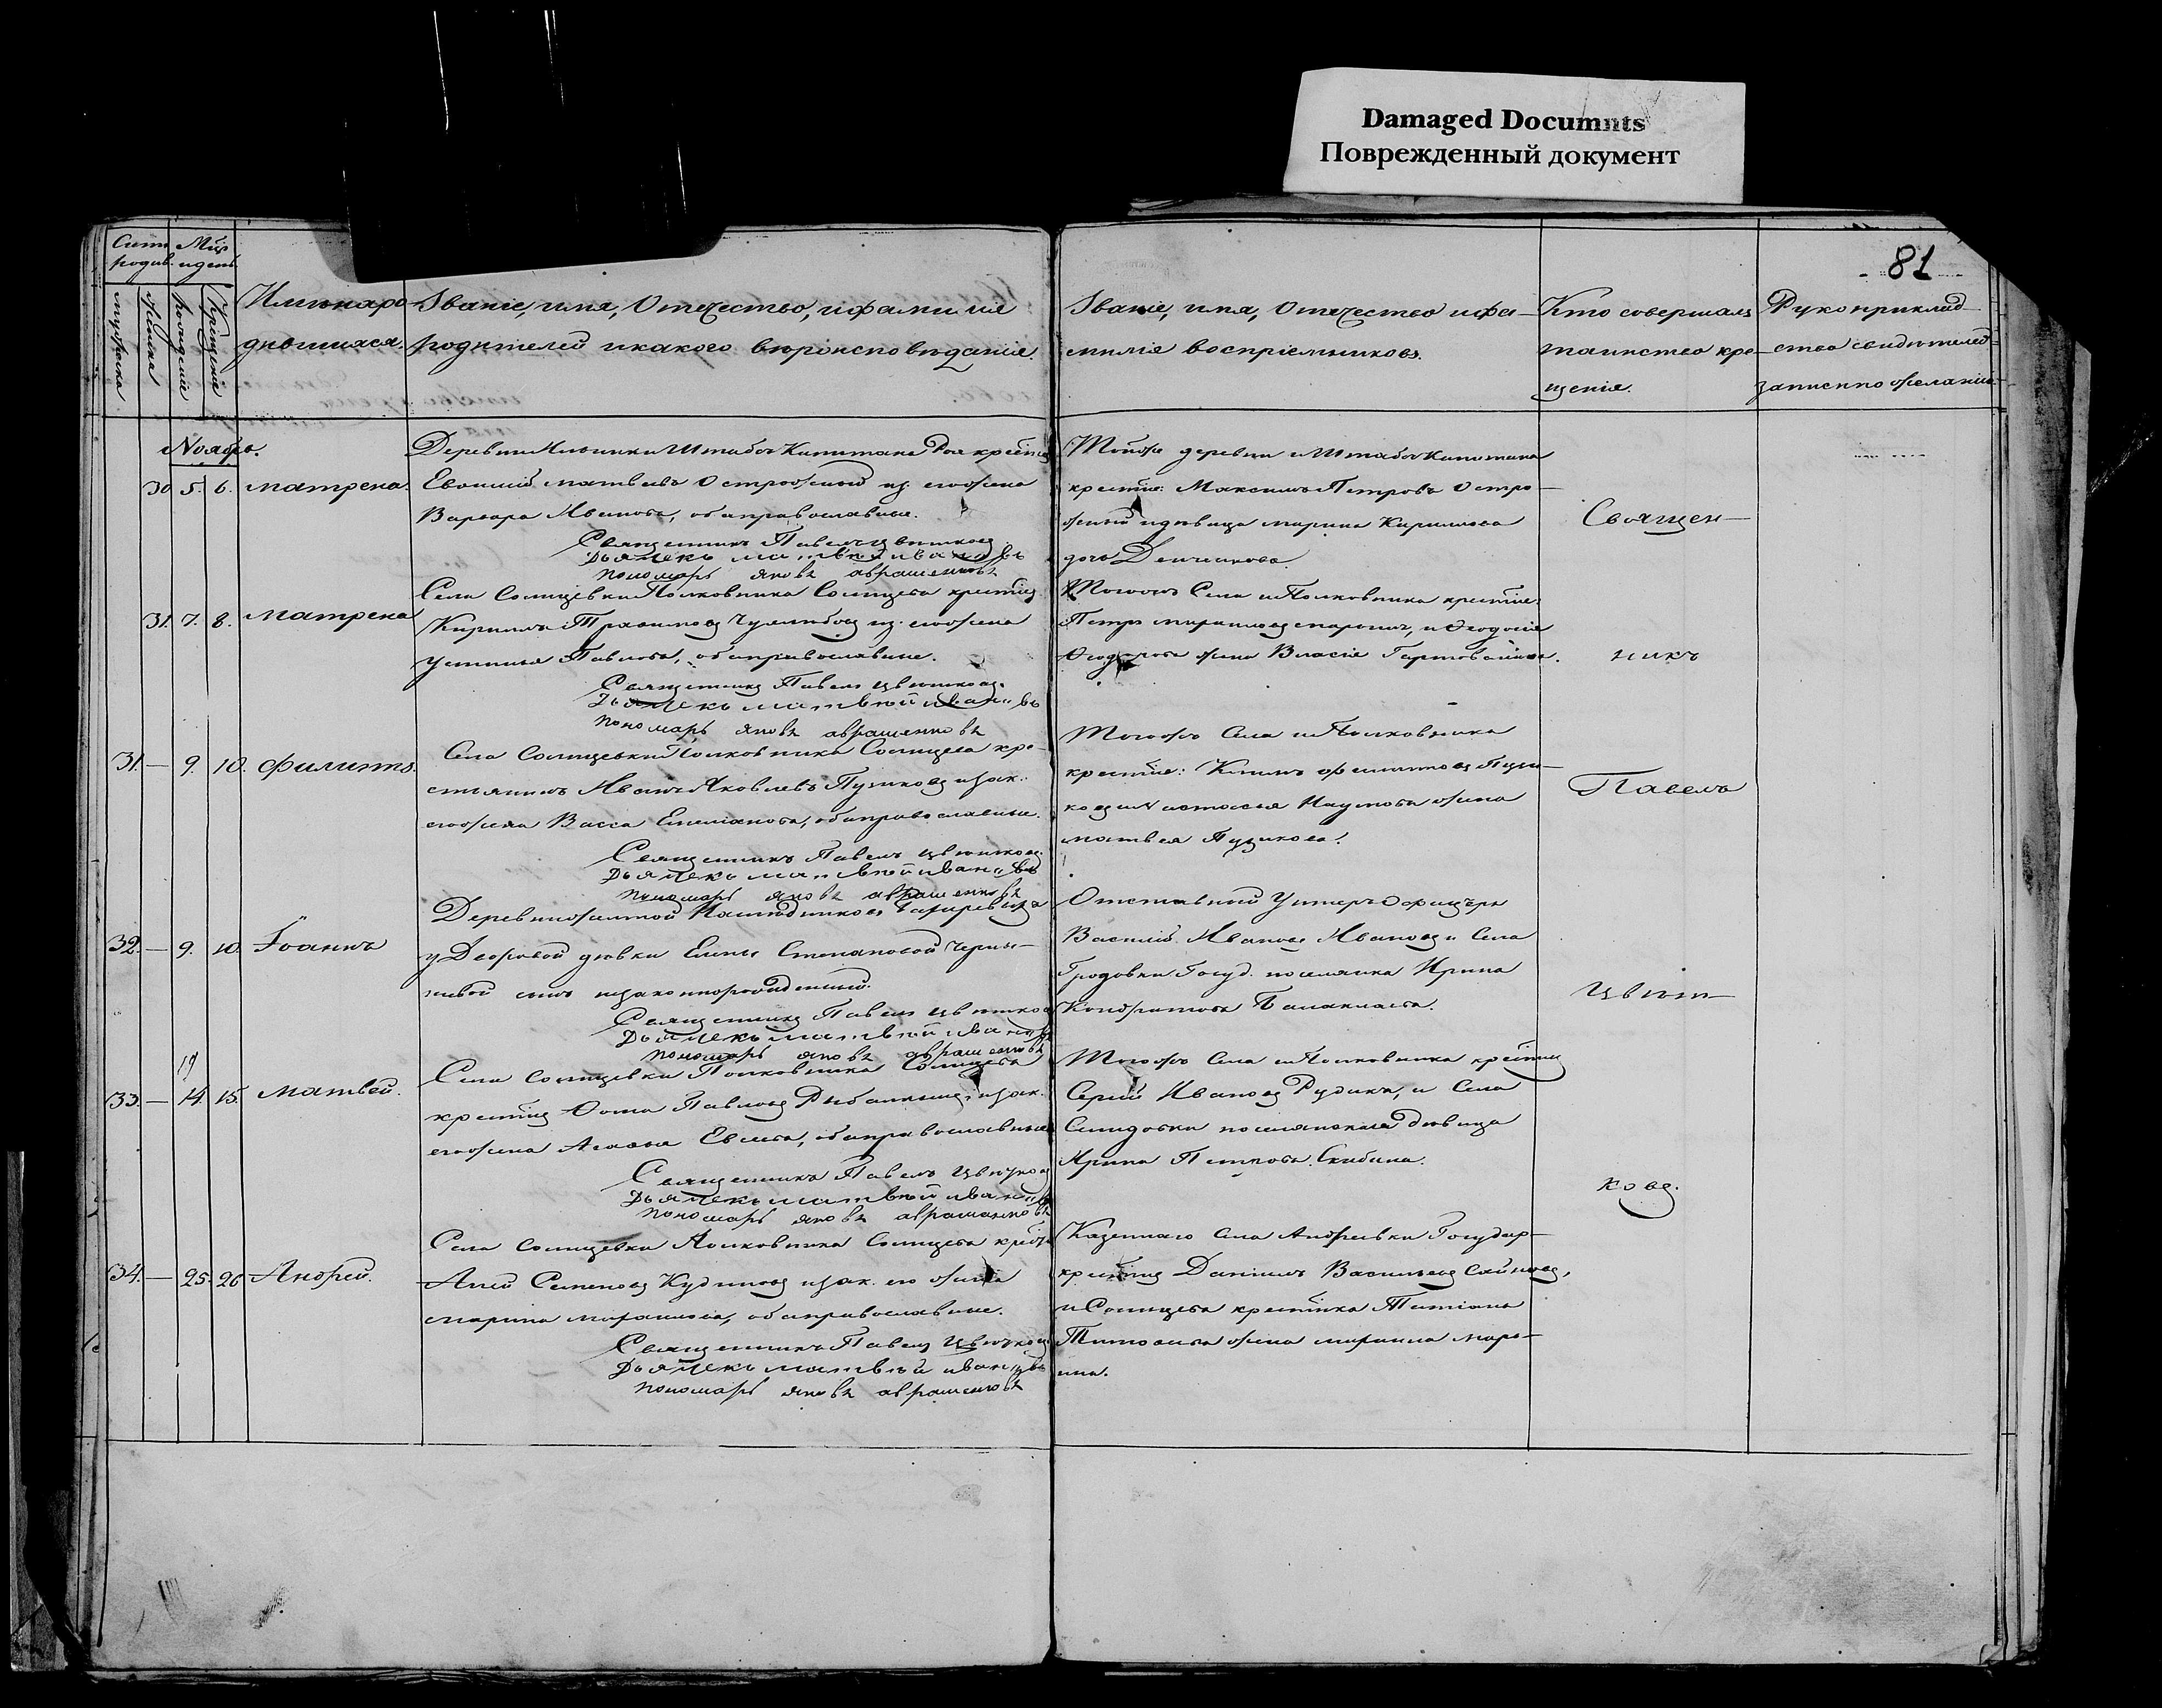 Damaged Documents
Поврежденный документ
81
Счетъ родив. Мѣс. и день
мужеска
женска
рожденія
крещенія
Имена ро-
дившихся.
Званіе, имя, Отечество, и фамилія
родителей и какого вѣроисповѣданія.
Званіе, имя, Отечество и фа-
милія воспріемниковъ.
Кто совершалъ
таинство кре-
щенія.
Рукоприклад-
ство свидѣтелей
записи по желанію
Ноябрь.
30 5. 6. Матрена.
Деревни Штабсъ Капитана крестья
Матвѣевъ Острожный его жена
Варвара Иванова, оба православные.
Священникъ Павелъ Цвѣтковъ
Дьячекъ Матвѣй Ивановъ
Пономарь Яковъ Аврашенковъ
Тойже деревни и Штабсъ Капитана
крестья: Максимъ Петровъ Остро-
жный и дѣвица Марина Кирилова
дочь
31. 7. 8. Матрена
Села Солнцевки Полковника Солнцева крестья
Кирилъ его жена
Устинья Павлова, оба православные.
Священникъ Павелъ Цвѣтковъ.
Дьячекъ Матвѣй Ивановъ
Пономарь Яковъ Аврашенковъ
Тогожъ Села и Полковника крестья:
Петръ и Ѳеодосія
Ѳеодорова жена Власія
31. — 9. 10. Филиппъ.
Села Солнцевки Полковника Солнцева кре-
стьянинъ Иванъ Яковлевъ Пузиковъ и зак.
его жена Васса Емельянова, оба православные.
Священникъ Павелъ Цвѣтковъ
Дьячекъ Матвѣй Ивановъ
Пономарь Яковъ Аврашенковъ
Тогожъ Села и Полковника
крестья: Климъ Филиповъ Пузи-
ковъ и Настасья Наумова жена
Матвея Пузикова.
32. — 9. 10. Іоаннъ
Деревни
у Дворовой дѣвки Елены Степановой
сынъ незаконнорожденный.
Священникъ Павелъ Цвѣтковъ
Дьячекъ Матвѣй Ивановъ
Пономарь Яковъ Аврашенковъ
Отставной Унтеръ Офицеръ
Василій Ивановъ Ивановъ и Села
Гродовки Госуд. поселянка Ирина
Кондратова
19
33. — 14. 15. Матвей.
Села Солнцевки Полковника Солнцева
крестья Ѳома Павловъ и зак.
его жена Агафья оба православные
Священникъ Павелъ Цвѣтковъ
Дьячекъ Матвѣй Ивановъ
Пономарь Яковъ Аврашенковъ
Тогожъ Села и Полковника крестья
Сергій Ивановъ Рудикъ, и Села
Семидовки поселянская дѣвица
Ирина Петрова Скибина.
34. — 25. 26 Андрей.
Села Солнцевки Полковника Солнцева крестья
Семеновъ Кудиновъ и зак. его жена
Марина оба православные.
Священникъ Павелъ Цвѣтковъ
Дьячекъ Матвѣй Ивановъ
Пономарь Яковъ Аврашенковъ
Казеннаго Села Андреевки Государ-
крестья Даніилъ Васильевъ
и Солнцева крестьянка Татіана
жена
Священ-
никъ
Павелъ
Цвѣт-
ковъ.